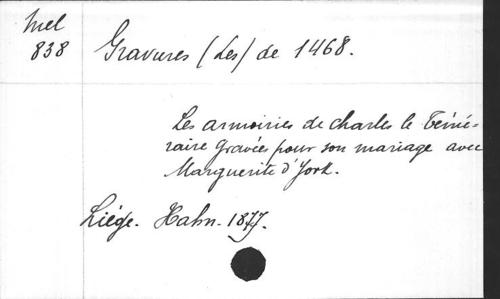 Mel
838
Gravures (Les) de 1468.
Les armoiries de Charles le Témé-
raire gravées pour son mariage avec
Marguerite d'York.
Liége. Hahn. 1877.